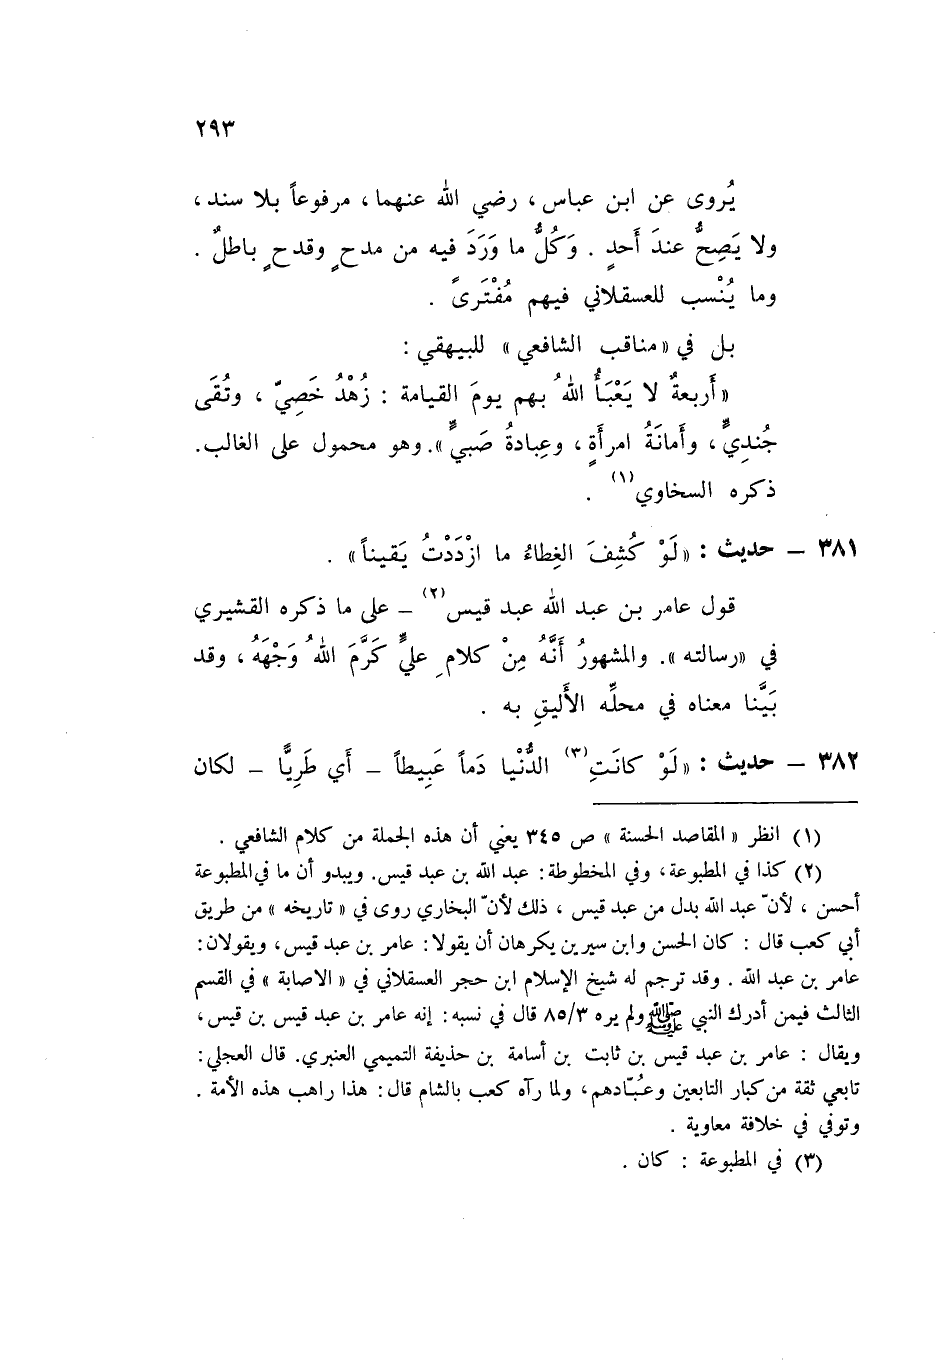 ٢٩٣
يُروى عن ابن عباس ، رضي الله عنهما ، مرفوعاً بلا سند ،
ولا يَصِحُّ عندَ أَحدٍ . وَكُلُّ ما وَرَدَ فيه من مدحٍ وقدحٍ باطلٌ .
وما يُنْسب للعسقلاني فيهم مُفْتَرىً .
بل في « مناقب الشافعي » للبيهقي :
« أَربعةٌ لا يَعْبَأُ اللهُ بهم يومَ القيامة : زُهْدُ خَصِيّ ، وتُقَى
جُنديٍّ ، وأَمانَةُ امرأَةٍ ، وعِبادةُ صَبيٍّ » . وهو محمول على الغالب .
ذكره السخاوي (١) .
٣٨١ – حديث : « لَوْ كُشِفَ الغِطاءُ ما ازْدَدْتُ يَقيناً » .
قول عامر بن عبد الله عبد قيس (٢) – على ما ذكره القشيري
في « رسالته » . والمشهورُ أَنَّهُ مِنْ كلامِ عليٍّ كَرَّمَ اللهُ وَجْهَهُ ، وقد
بَيَّنا معناه في محلِّه الأَليقِ به .
٣٨٢ – حديث : « لَوْ كانَتِ (٣) الدُّنْيا دَماً عَبِيطاً – أَي طَرِيًّا – لكان
(١) انظر « المقاصد الحسنة » ص ٣٤٥ يعني أن هذه الجملة من كلام الشافعي .
(٢) كذا في المطبوعة ، وفي المخطوطة : عبد الله بن عبد قيس . ويبدو أن ما في المطبوعة
أحسن ، لأنّ عبد الله بدل من عبد قيس ، ذلك لأنّ البخاري روى في « تاريخه » من طريق
أبي كعب قال : كان الحسن وابن سيرين يكرهان أن يقولا : عامر بن عبد قيس ، ويقولان :
عامر بن عبد الله . وقد ترجم له شيخ الإسلام ابن حجر العسقلاني في « الاصابة » في القسم
الثالث فيمن أدرك النبي ﷺ ولم يره ٨٥/٣ قال في نسبه : إنه عامر بن عبد قيس بن قيس ،
ويقال : عامر بن عبد قيس بن ثابت بن أسامة بن حذيفة التميمي العنبري . قال العجلي :
تابعي ثقة من كبار التابعين وعُبّادهم ، ولما رآه كعب بالشام قال : هذا راهب هذه الأمة .
وتوفي في خلافة معاوية .
(٣) في المطبوعة : كان .